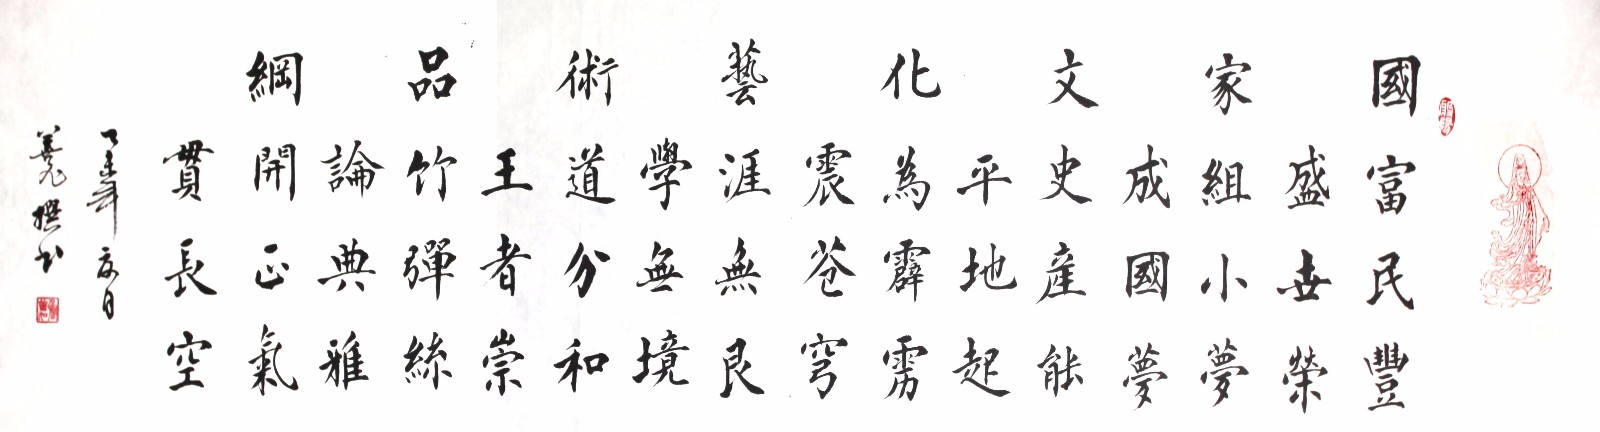 國富民豐
盛世榮
家組小夢
成國夢
文史產能
平地起
化為霹雳
震苍穹
藝涯無艮
學無境
術道分和
王者崇
品竹彈絲
論典雅
綱開正氣
貫長空
乙未年夏月
撰书